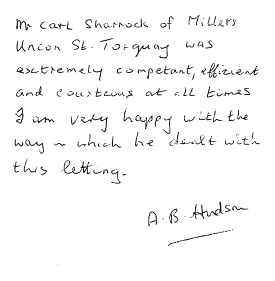 Mr Carl Sharrock of Millers
Union St. Torquay was
exctremely competant, efficient
and courteous at all times
I am very happy with the
way in which he dealt with
this letting.
A.B. Hudson